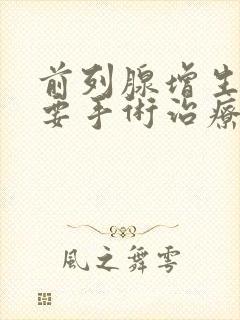 前列腺增生
要手術治療
風之舞雩